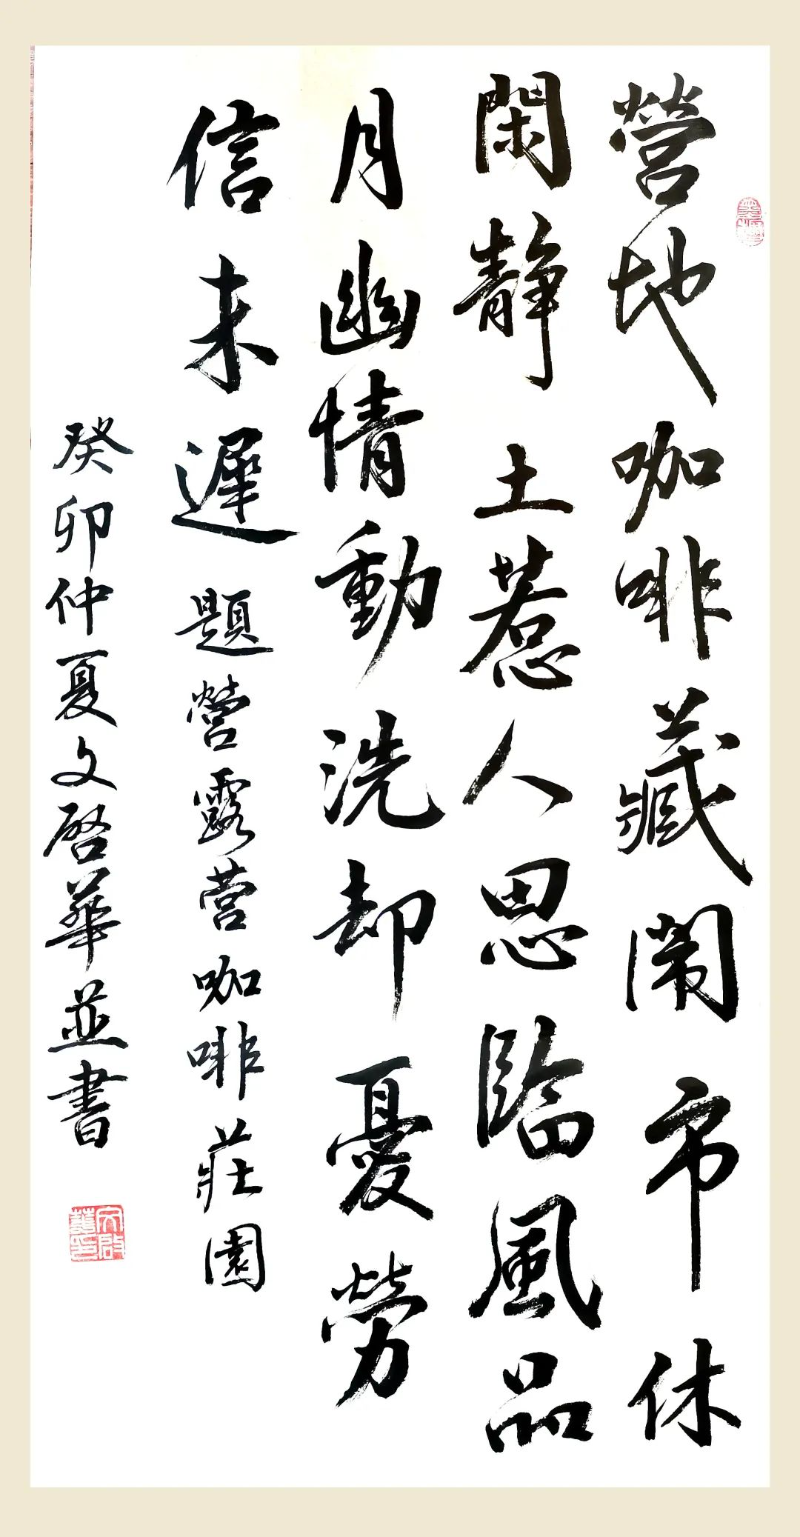 營地咖啡藏閙市休
閑静土惹人思臨風品
月幽情動洗却憂勞
信未遲題營露营咖啡莊園
癸卯仲夏文啓華並書
文啟華印